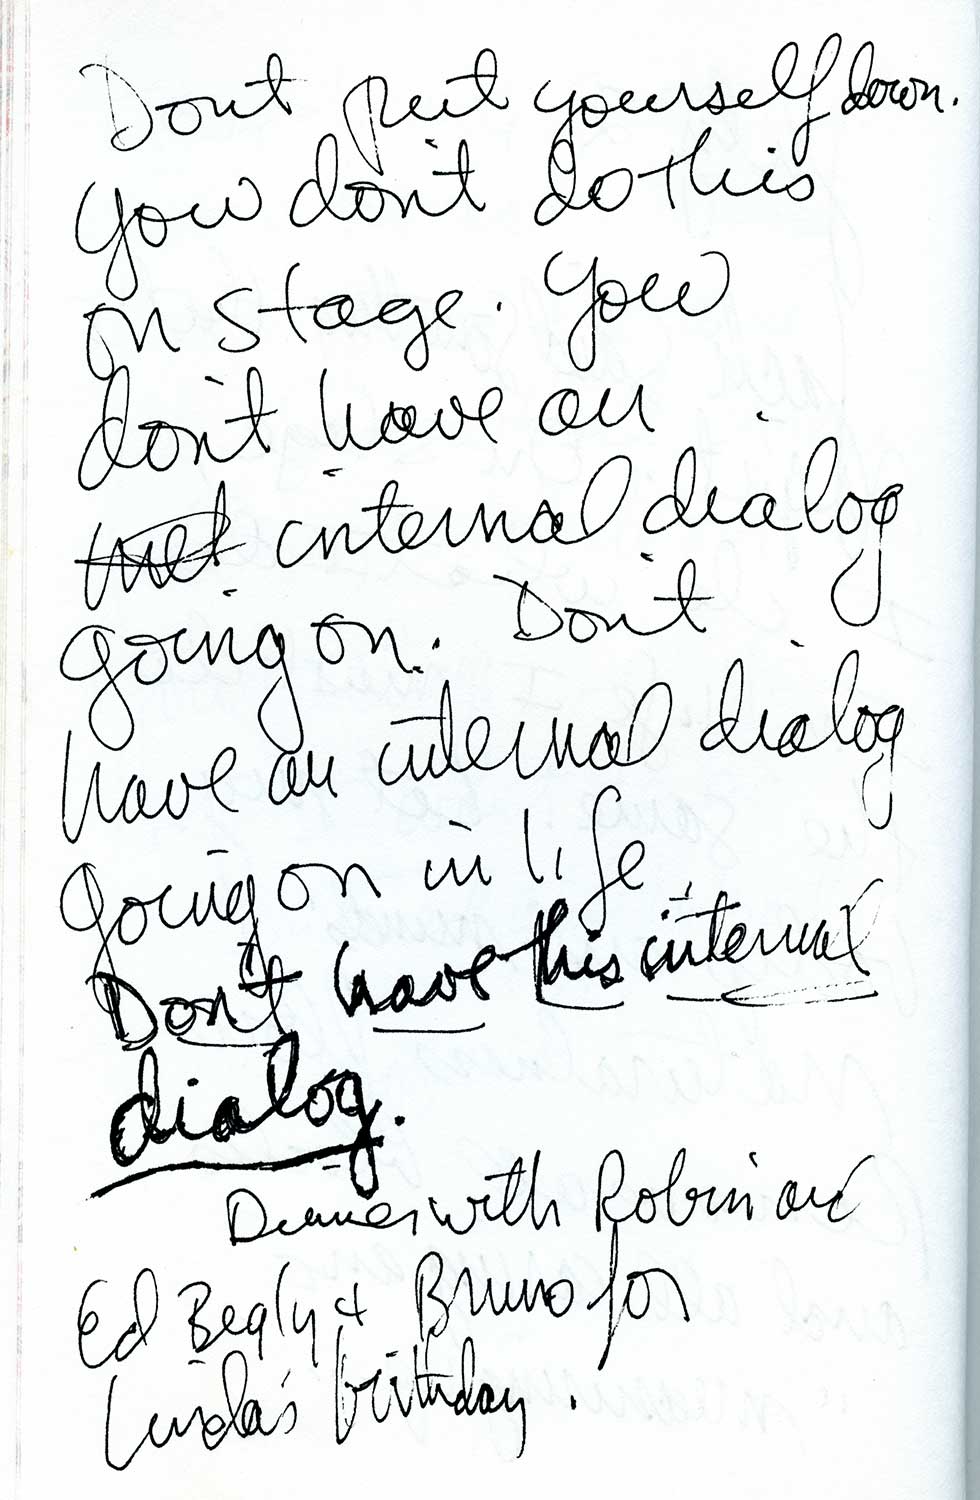 Dont put yourself down.
You don't do this
on stage. You
don't have an
internal dialog
going on. Don't
have an internal dialog
going on in life
Don't have this internal
dialog.
Dinner with Robin and
Ed Begly + Bruno for
Linda's birthday.